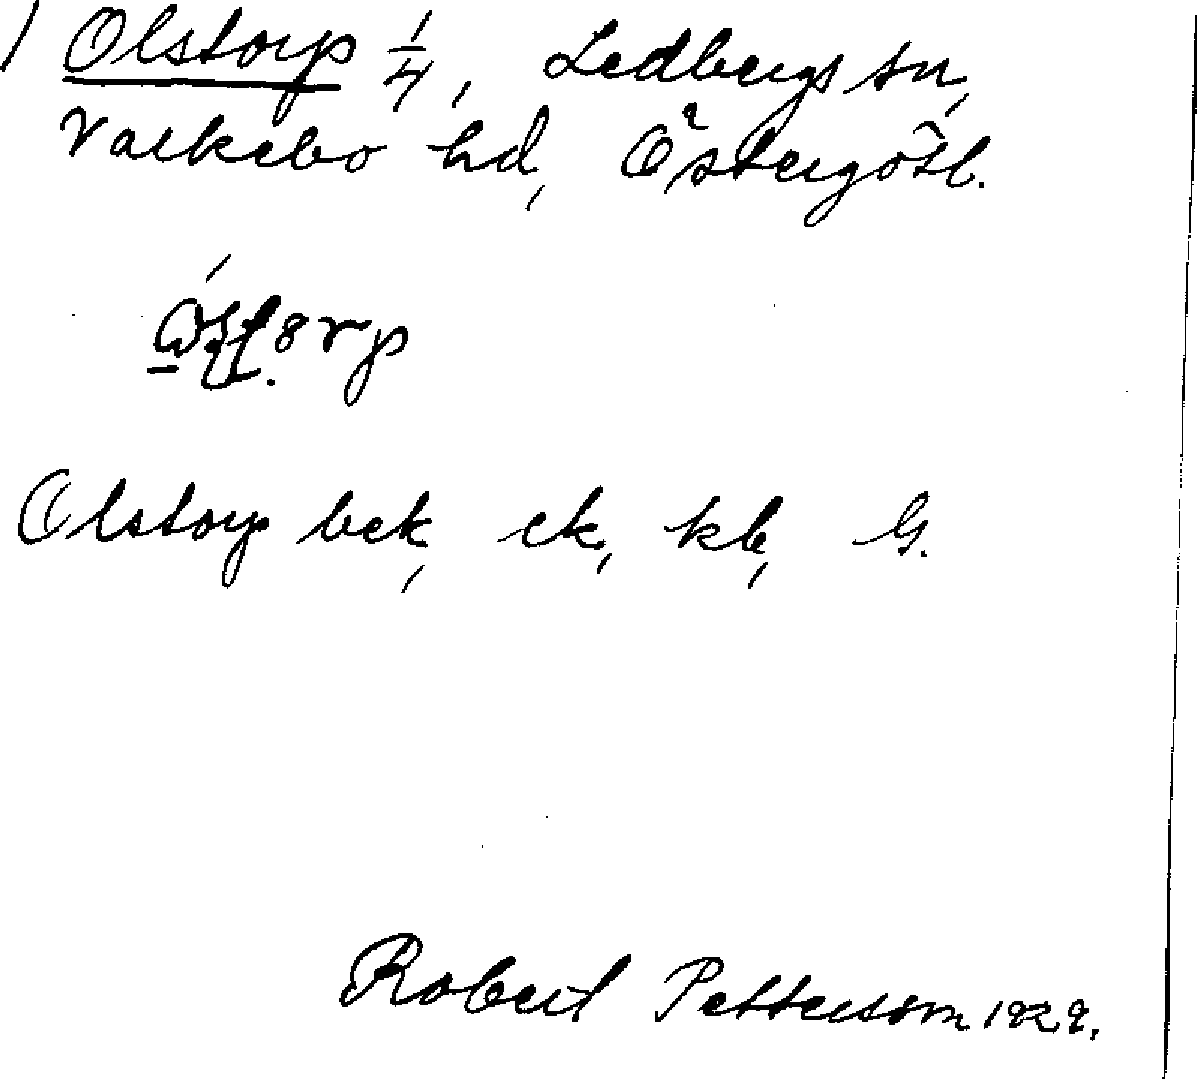 Olstorp 1/4, Ledbergs sn,
Valkebo hd, Östergötl.
Olstorp bek, ek, kb, G.
Robert Pettersson 1929.